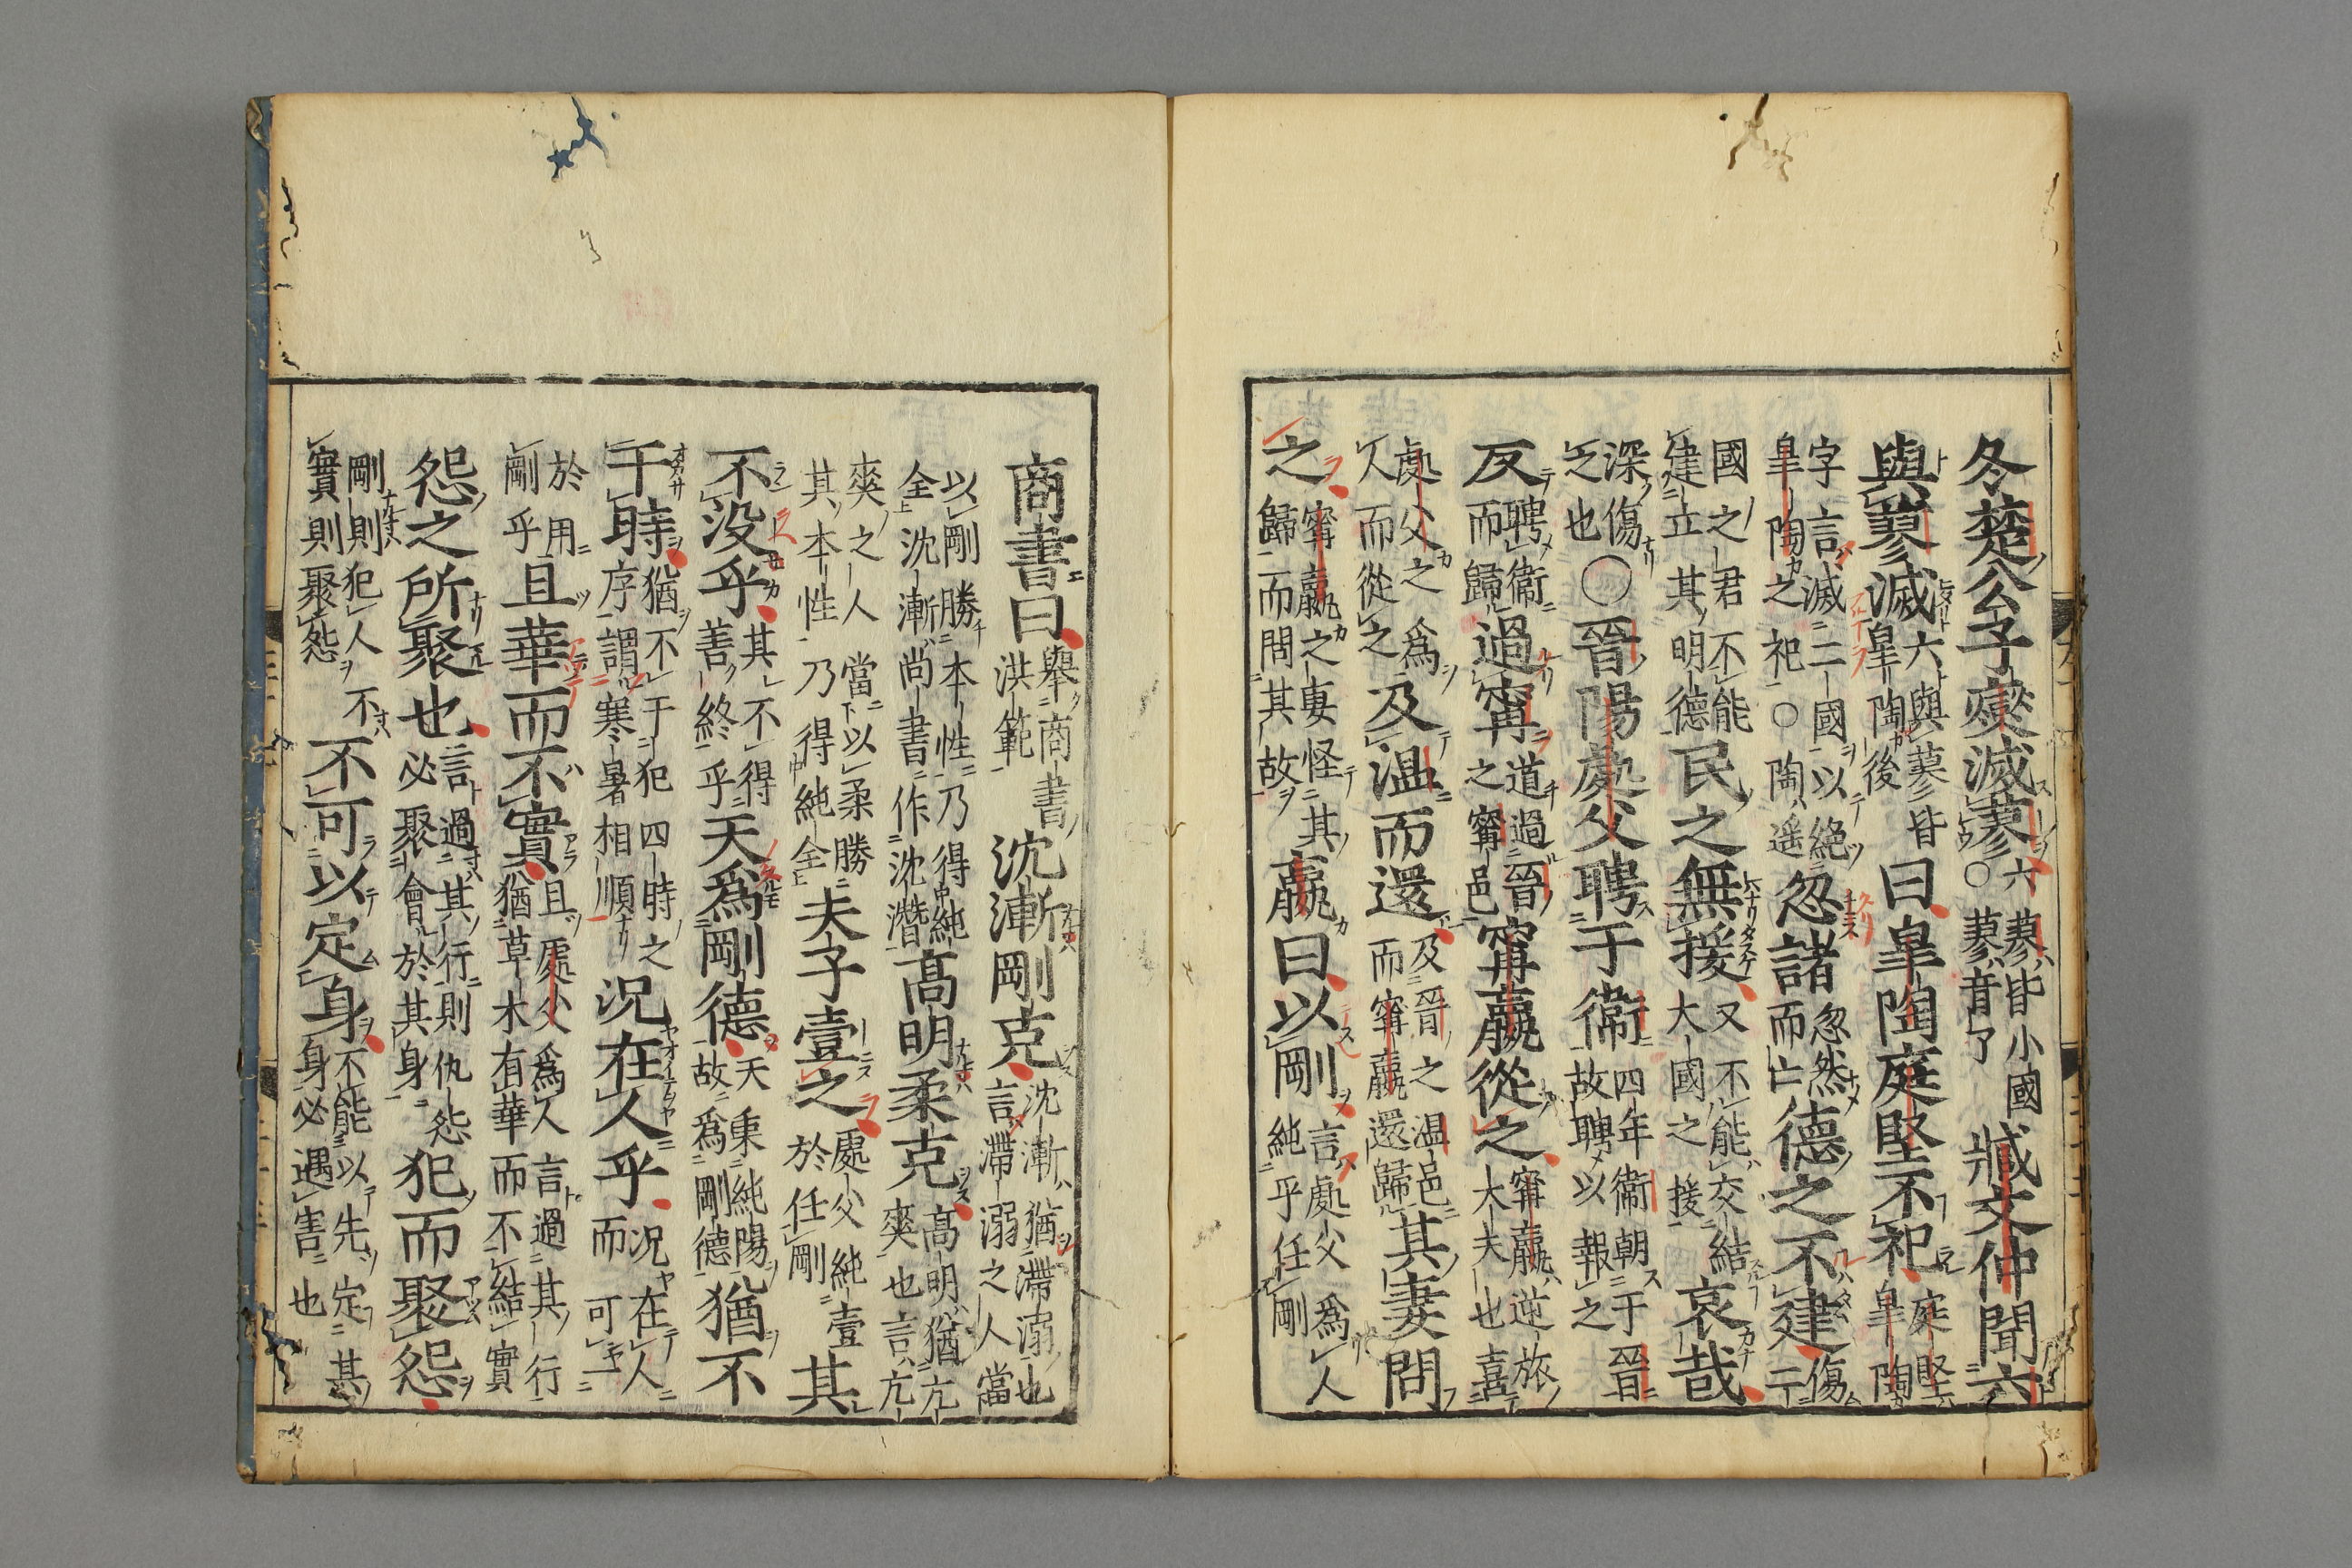 冬楚公子燮滅蓼六蓼皆小國○蓼音了臧文仲聞六
與蓼滅六與蓼皆皐陶後曰皐陶庭堅不祀庭堅皐陶
字言滅二國以絶皐陶之祀○陶遥忽諸忽然而亡德之不建傷二
國之君不能建立其明德民之無援又不能交結大國之援哀哉
深傷之也○晉陽處父聘于衛四年衛朝于晉故聘以報之
反聘衛而歸過甯道過晉之甯邑甯嬴從之甯嬴逆旅大夫也喜
處父之為人而從之及溫而還及晉之温邑而甯嬴還歸其妻問
之甯嬴之妻怪其歸而問其故嬴曰以剛言處父為人純乎任剛
商書曰舉商書洪範沈漸剛克沈漸猶滯溺也言滯溺之人當
以剛勝本性乃得純全沈漸尚書作沈潛高明柔克高明猶亢爽也言亢
爽之人當以柔勝其本性乃得純全夫子壹之處父純壹於任剛其
不没乎其不得善終乎天為剛德天秉純陽故為剛德猶不
干時猶不干犯四時之序謂寒暑相順况在人乎况在人而可一
於用剛乎且華而不實且處父為人言過其行猶草木有華而不結實
怨之所聚也言過其行則仇怨必聚會於其身犯而聚怨
剛則犯人不實則聚怨不可以定身不能以先定其身必遇害也